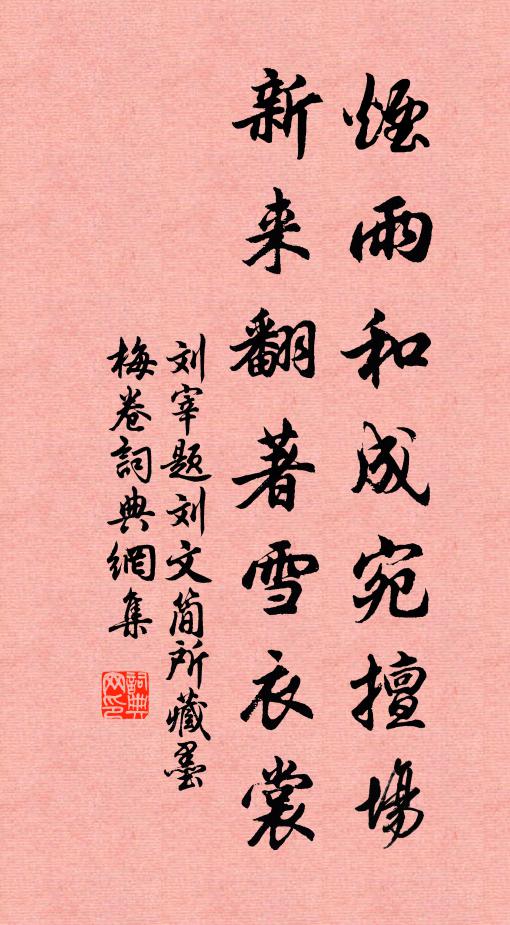 煙雨和成宛擅場
新来翻著雪衣裳
刘宰题刘文简所藏墨
梅卷詞典網集
詞典网印